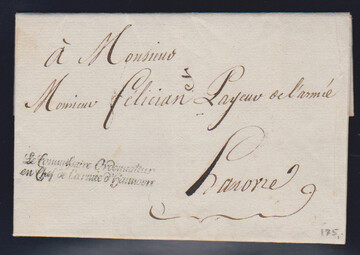 à Monsieur
Monsieur Félician Payeur de l'armée
Le Commissaire Ordonnateur
en Chef de l'armée d'Hanovre
hanovre
175,